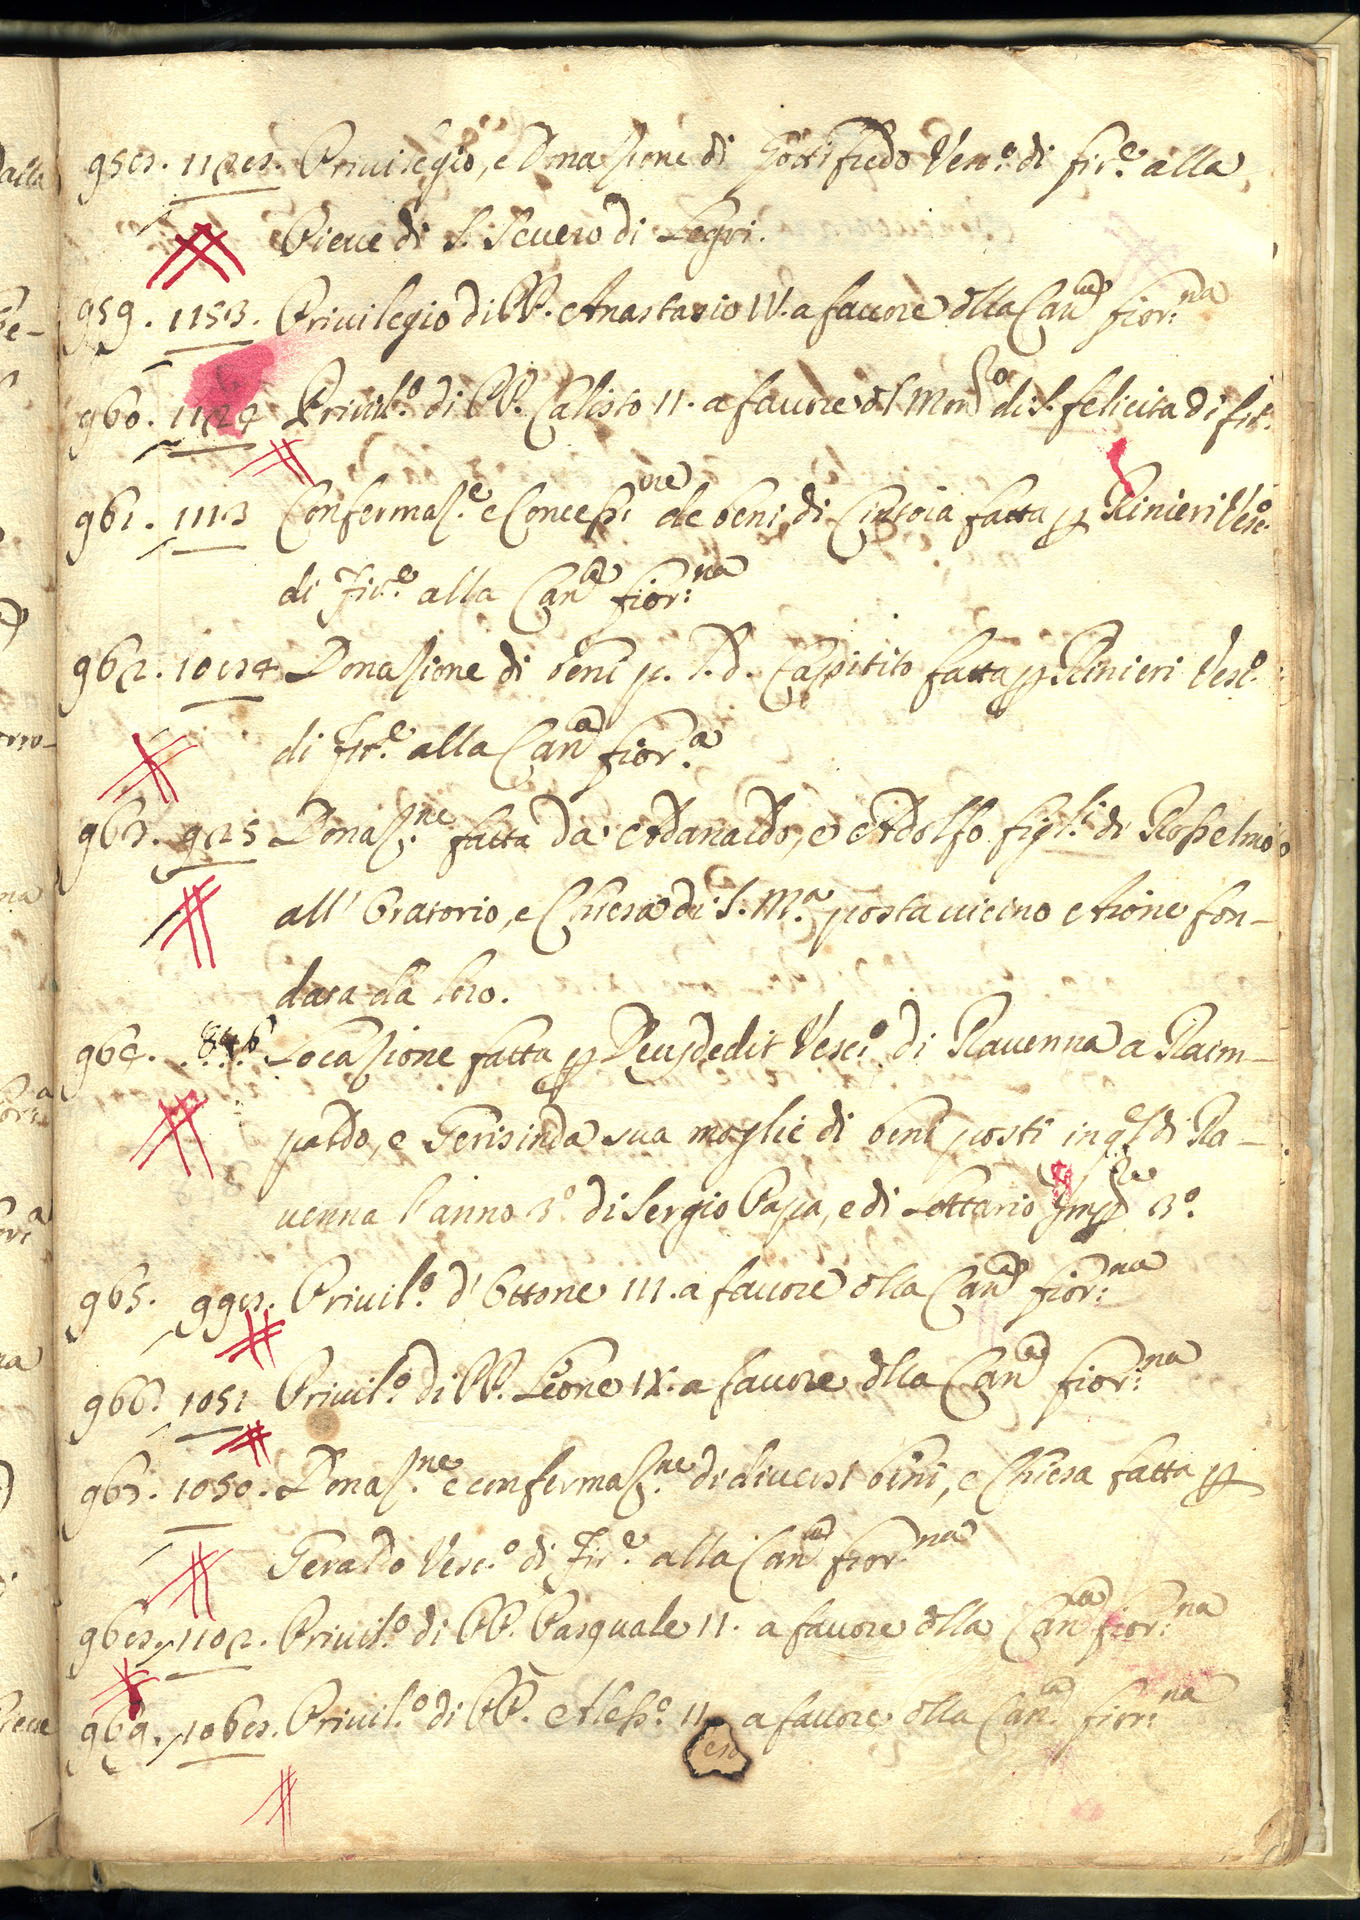 958. 1128. Privilegio, e Donazione di Gottifredo Vesc.º di Fir.e alla
Pieve di S. Severo di Legri.
959. 1153. Privilegio di PP. Anastasio IV. a favore dlla Can.ca Fior:na
960. 1124 Privil.º di PP. Calisto II. a favore dl Mon.º di S. Felicita di Fir.
961. 1113 Confermaz.e e Concess:ne de beni di Cintoia fatta p Rinieri Vesc.º
di Fir.e alla Can.ca Fior:na
962. 1084 Donazione di beni p. S. d. Capitito fatta p Rinieri Vesc.º
di Fir.e alla Can.ca Fior.a
963. 925 Donaz.ne fatta da Adanaldo, e Adolfo figl.i di Rosselmo
all' Oratorio, e Chiesa di S. M.a posta vicino Aione fon-
data da loro.
964. 846 Locazione fatta p Deusdedit Vesc.º di Ravenna a Raim-
paldo, e Gerisinda sua moglie di beni posti in q.l di Ra-
venna l'anno 3.º di Sergio Papa, e di Lottario Imp.re 3.º
965. 998. Privil.º d'Ottone III. a favore dlla Can.ca Fior:na
966. 1051 Privil.º di PP. Leone IX. a favore dlla Can.ca Fior:na
967. 1050. Donaz.ne e confermaz.ne di diversi beni, e Chiesa fatta p
Geraldo Vesc.º di Fir.e alla Can.ca Fior.na
968. 1102. Privil.º di PP. Pasquale II. a favore dlla Can.ca Fior:na
969. 1068. Privil.º di PP. Aless.º II. a favore dlla Can.ca Fior:na